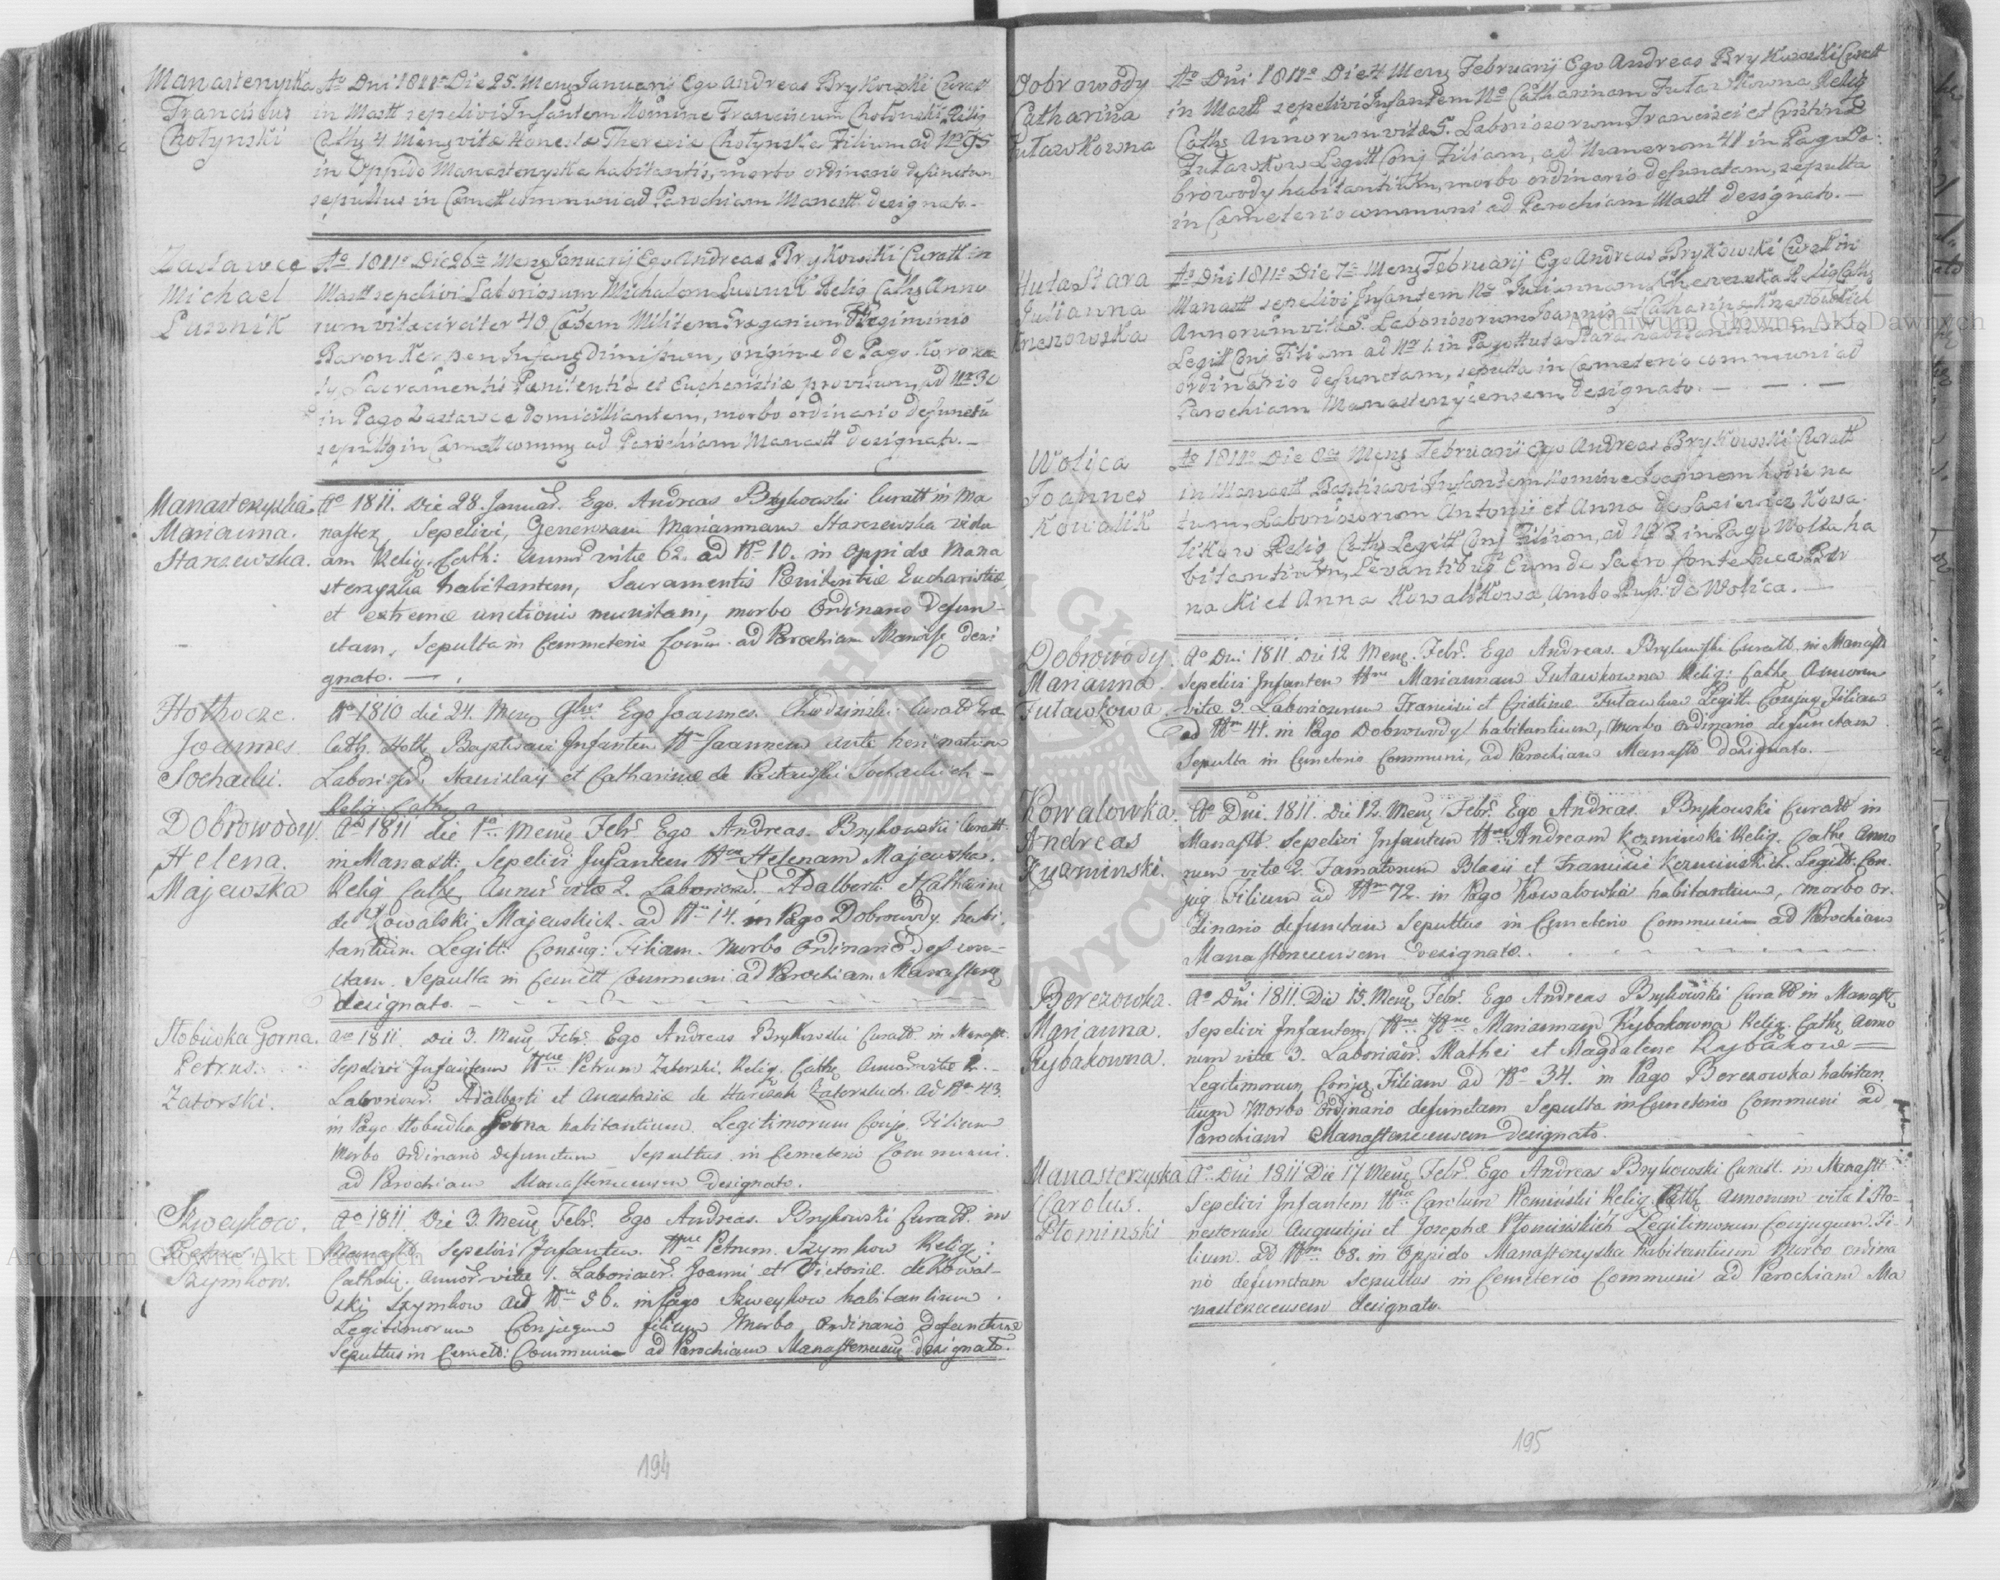 Manasterzyska
Franciscus
Chotynski
Ao Dni 1811o Die 25. Mens Januarij Ego Andreas Brykowski Curatt
in Mastt sepelivi Infantem Nomine Franciscum Chotinski Relig
Caths 4 Mens vitæ Honestæ Theresiæ Chotynska Filium ad Nr 95
in Oppido Manasterzyska habitantis, morbo ordinario defunctum
sepultus in Cœmett communi ad Parochiam Manastt designato.
Zastawce
Michael
Pusznik
Ao 1811o Die 26ta Mens Januarij Ego Andreas Brykowski Curatt in
Mastt sepelivi Laboriosum Michalem Relig Caths Anno
rum vitæ circiter 40. Militem Gregarium Regiminis
Baron Kerpen dimissum, origine de Pago
Sacramentis Pœnitentiæ et Eucharistiæ provisum, ad Nr 30
in Pago Zastawce domicilliantem, morbo ordinario defunctu
sepultg in Cœmett commg ad Parochiam Manastt designato.
Manasterzyska.
Marianna.
Starzewska.
Ao 1811. Die 28. Januar. Ego Andreas Brykowski Curatt in Ma
naster, Sepelivi, Generosam Mariannam Starzewska vidu
am Relig. Cath: Annor vitæ 62. ad No 10. in Oppido Mana
sterzyska habitantem, Sacramentis Pœnitentiæ Eucharistiæ
et extremæ unctionis munitam, morbo Ordinario defun-
ctam, Sepulta in Cemmeterio Comm: ad Parochiam Manast desi
gnato.
Hothocze.
Joannes
Sochacki.
Ao 1810 die 24. Mens 9bris Ego Joannes Chudzinski Curatt
Cath. Hoth. Baptisavi Infantem Nne Joannem ante heri natum
Laborios. Stanislaij et Catharinæ de Sochackich
Relig. Cath.
Dobrowody.
Helena.
Majewska
Ao 1811 die 1ma Mens Febr. Ego Andreas Brykowski Curatt.
in Manastt. Sepelivi Infantem Nne Helenam Majewska.
Relig Cath Annor vitæ 2. Laborios. Adalberti et Catharinæ
de Kowalski Majewskich. ad Nr 14. in Pago Dobrowody habi
tantium Legitt: Conjug: Filiam. Morbo Ordinario defun-
ctam. Sepulta in Cemett Communi ad Parochiam Manasterz
designato
Stobudka Gorna.
Petrus.
Zatorski.
Ao 1811. Die 3. Mens Febr. Ego Andreas Brykowski Curatt in Manast.
Sepelivi Infantem Nne Petrum Zatorski. Relig. Cath. Annor vitæ 2.
Laborior. Adalberti et Anastasiæ de Zatorskich. ad Nr 43
in Pago Stobudka Gorna habitantium. Legitimorum Conjg. Filium
Morbo Ordinario defunctum Sepultus in Cemeterio Communi
ad Parochiam Manasterzecensem designato.
Szweykow.
Petrus.
Szymkow.
Ao 1811. Die 3. Mens Febr. Ego Andreas. Brykowski Curatt. in
Manastt. Sepelivi Infantem. Nne Petrum Szymkow Relig:
Catholi. Annor vitæ 1. Laborior. Joanni et Victoriæ. de Kowal-
ski Szymkow ad Nr 56. in Pago Szweykow habitantium.
Legitimorum Conjugum filium Morbo Ordinario Defunctum
Sepultus in Cemett: Communi ad Parochiam Manasterzens designato.
194
Dobrowody
Catharina
Futawkowna
Ao Dni 1811o Die 4 Mens Februarij Ego Andreas Brykowski Curatt
in Mastt sepelivi Infantem Ne Catharinam Futawkowna Relig
Caths Annorum vitæ 5. Laboriosorum Francisci et Cristinæ
Futawkow Legitt Conj Filiam, ad Numerum 41 in Pago Do-
browody habitantium, morbo ordinario defunctam, sepulta
in Cœmeterio communi ad Parochiam Mastt designato.
Huta Stara
Julianna
Kreszowska
Ao Dni 1811o Die 7ma Mens Februarij Ego Andreas Brykowski Curatt in
Manastt sepelivi Infantem Ne Juliannam Relig Caths
Annorum vitæ 5. Laboriosorum Joannis et Catharinæ
Legitt Conj Filiam ad Nr 1. in Pago Huta Stara habitantium morbo
ordinario defunctam, sepulta in Cœmeterio communi ad
Parochiam Manasterzicensem designato.
Wolica
Joannes
Kowalik
Ao 1811o Die 8va Mens Februarij Ego Andreas Brykowski Curatt
in Manastt Baptisavi Infantem Nomine Joannem hodie na
tum, Laboriosorum Antonii et Anna de Lasiewicz Kowa-
likow Relig Caths Legitt Conj Filium, ad Nr 3 in Pago Wolza ha
bitantium, Levantibus Eum de Sacro fonte Luca
nacki et Anna Kowalikowa, Ambo Rust: de Wolica.
Dobrowody.
Marianna.
Futawkowa.
Ao Dni 1811 Die 12 Mens. Febr. Ego Andreas. Brykowski Curatt in Manastt
Sepelivi Infantem Nne Mariannam Futawkowna Relig: Cath Annorum
vitæ 3. Laboriosorum Francisci et Cristinæ Futawkow Legitt. Conjug. Filiam
ad Nm 41. in Pago Dobrowody habitantium, Morbo Ordinario defunctam
Sepulta in Cemeterio Communi, ad Parochiam Manastt designato.
Kowalowka.
Andreas
Kuzminski.
Ao Dni. 1811. Die 12. Mens Febr. Ego Andreas. Brykowski Curatt in
Manastt. Sepelivi Infantem Nne Andream Kozminski Relig. Cath. Anno
rum vitæ 2. Famatorum Blasii et Francisci Kozminskich. Legitt. Con-
jug. Filium ad Nm 72. in Pago Kowalowka habitantium, Morbo Or-
dinario defunctam Sepultus in Cemeterio Communi ad Parochiam
Manasterzecensem designato.
Berezowka.
Marianna.
Rybakowna.
Ao Dni 1811. Die 15. Mens Febr. Ego Andreas Brykowski Curatt in Manast
Sepelivi Infantem Nne Mariannam Rybakowna Relig. Cath Anno
rum vitæ 3. Laborior. Mathei et Magdalene Rybakow
Legitimorum Conjug. Filiam ad No 34. in Pago Berezowka habitan
tium Morbo Ordinario defunctam Sepulta in Cemeterio Communi ad
Parochiam Manasterzecensem designato.
Manasterzyska
Carolus.
Ptominski
Ao Dni 1811 Die 17 Mens Febr. Ego Andreas Brykowski Curatt. in Manastt
Sepelivi Infantem Nne Carolum Ptominski Relig. Cath Annorum vitæ 1. Ho-
nestorum Augustyni et Josephæ Ptominskich Legitimorum Conjugum Fi-
lium. ad Nm 68. in Oppido Manasterzyska habitantium Morbo ordina
rio defunctam Sepultus in Cemeterio Communi ad Parochiam Ma
nasterzecensem designato
195
Archiwum Główne Akt Dawnych
Archiwum Główne Akt Dawnych
ARCHIWUM GŁÓWNE AKT DAWNYCH